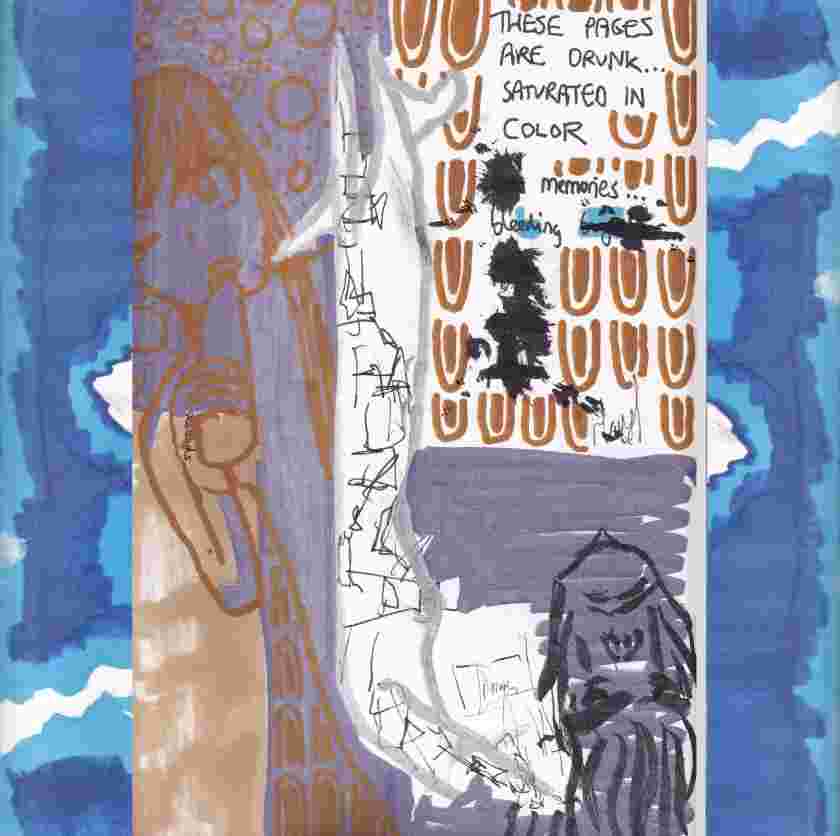 THESE PAGES
ARE DRUNK...
SATURATED IN
COLOR
memories...
bleeding